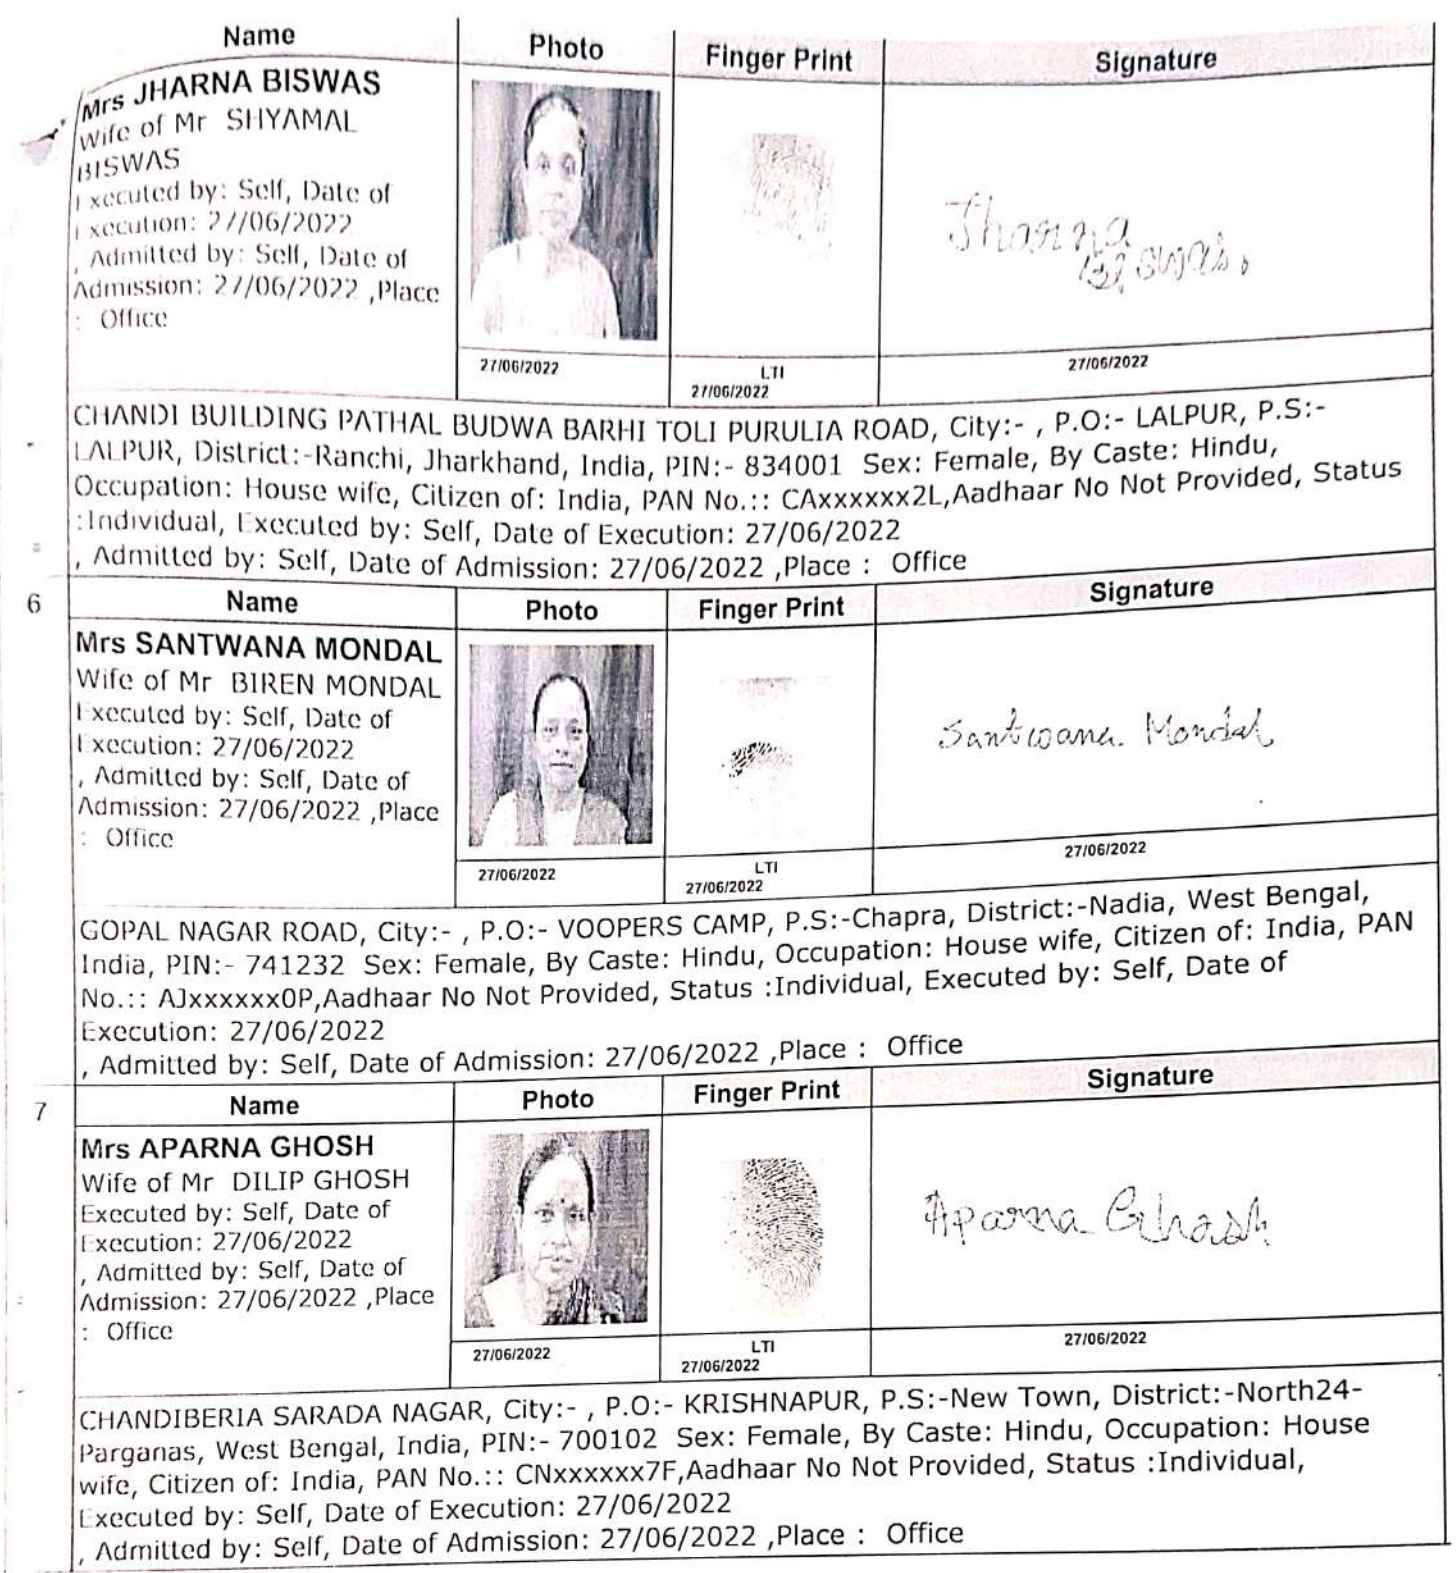 Name Photo Finger Print Signature
Mrs JHARNA BISWAS
Wife of Mr SHYAMAL
BISWAS
Executed by: Self, Date of
Execution: 27/06/2022
, Admitted by: Self, Date of
Admission: 27/06/2022 ,Place
: Office
Jharna
Biswas.
27/06/2022
LTI
27/06/2022
27/06/2022
CHANDI BUILDING PATHAL BUDWA BARHI TOLI PURULIA ROAD, City:- , P.O:- LALPUR, P.S:-
LALPUR, District:-Ranchi, Jharkhand, India, PIN:- 834001 Sex: Female, By Caste: Hindu,
Occupation: House wife, Citizen of: India, PAN No.:: CAxxxxxx2L,Aadhaar No Not Provided, Status
:Individual, Executed by: Self, Date of Execution: 27/06/2022
, Admitted by: Self, Date of Admission: 27/06/2022 ,Place : Office
6 Name Photo Finger Print Signature
Mrs SANTWANA MONDAL
Wife of Mr BIREN MONDAL
Executed by: Self, Date of
Execution: 27/06/2022
, Admitted by: Self, Date of
Admission: 27/06/2022 ,Place
: Office
Santwana. Mondal
27/06/2022
LTI
27/06/2022
27/06/2022
GOPAL NAGAR ROAD, City:- , P.O:- VOOPERS CAMP, P.S:-Chapra, District:-Nadia, West Bengal,
India, PIN:- 741232 Sex: Female, By Caste: Hindu, Occupation: House wife, Citizen of: India, PAN
No.:: AJxxxxxx0P,Aadhaar No Not Provided, Status :Individual, Executed by: Self, Date of
Execution: 27/06/2022
, Admitted by: Self, Date of Admission: 27/06/2022 ,Place : Office
7 Name Photo Finger Print Signature
Mrs APARNA GHOSH
Wife of Mr DILIP GHOSH
Executed by: Self, Date of
Execution: 27/06/2022
, Admitted by: Self, Date of
Admission: 27/06/2022 ,Place
: Office
Aparna Ghosh
27/06/2022
LTI
27/06/2022
27/06/2022
CHANDIBERIA SARADA NAGAR, City:- , P.O:- KRISHNAPUR, P.S:-New Town, District:-North24-
Parganas, West Bengal, India, PIN:- 700102 Sex: Female, By Caste: Hindu, Occupation: House
wife, Citizen of: India, PAN No.:: CNxxxxxx7F,Aadhaar No Not Provided, Status :Individual,
Executed by: Self, Date of Execution: 27/06/2022
, Admitted by: Self, Date of Admission: 27/06/2022 ,Place : Office